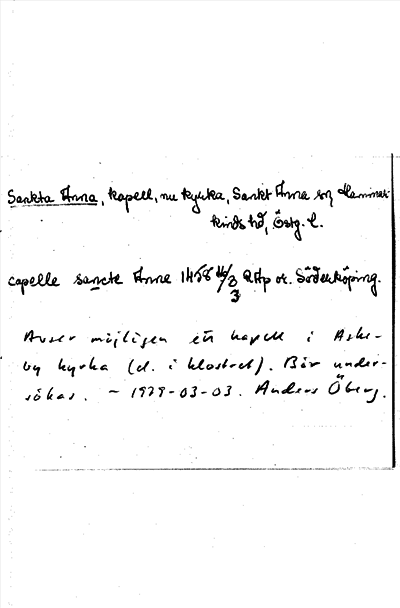 Sankta Anna, kapell, nu kyrka, Sankt Anna sn Hammar-
kinds hd, Östg. l.
capelle sancte Anne 1458 16/3 RAp or. Söderköping.
Avser möjligen ett kapell i Aske-
by kyrka (el. i klostret). Bör under-
sökas. ~ 1979-03-03. Anders Öberg.